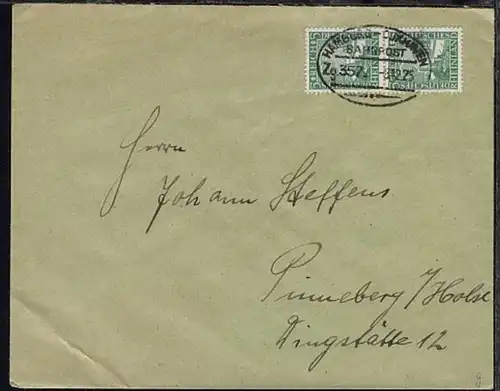 HAMBURG - CUXHAVEN
BAHNPOST
Zg.357
-8.12.25
Herrn
Johann Steffens
Pinneberg / Holst
Dingstätte 12